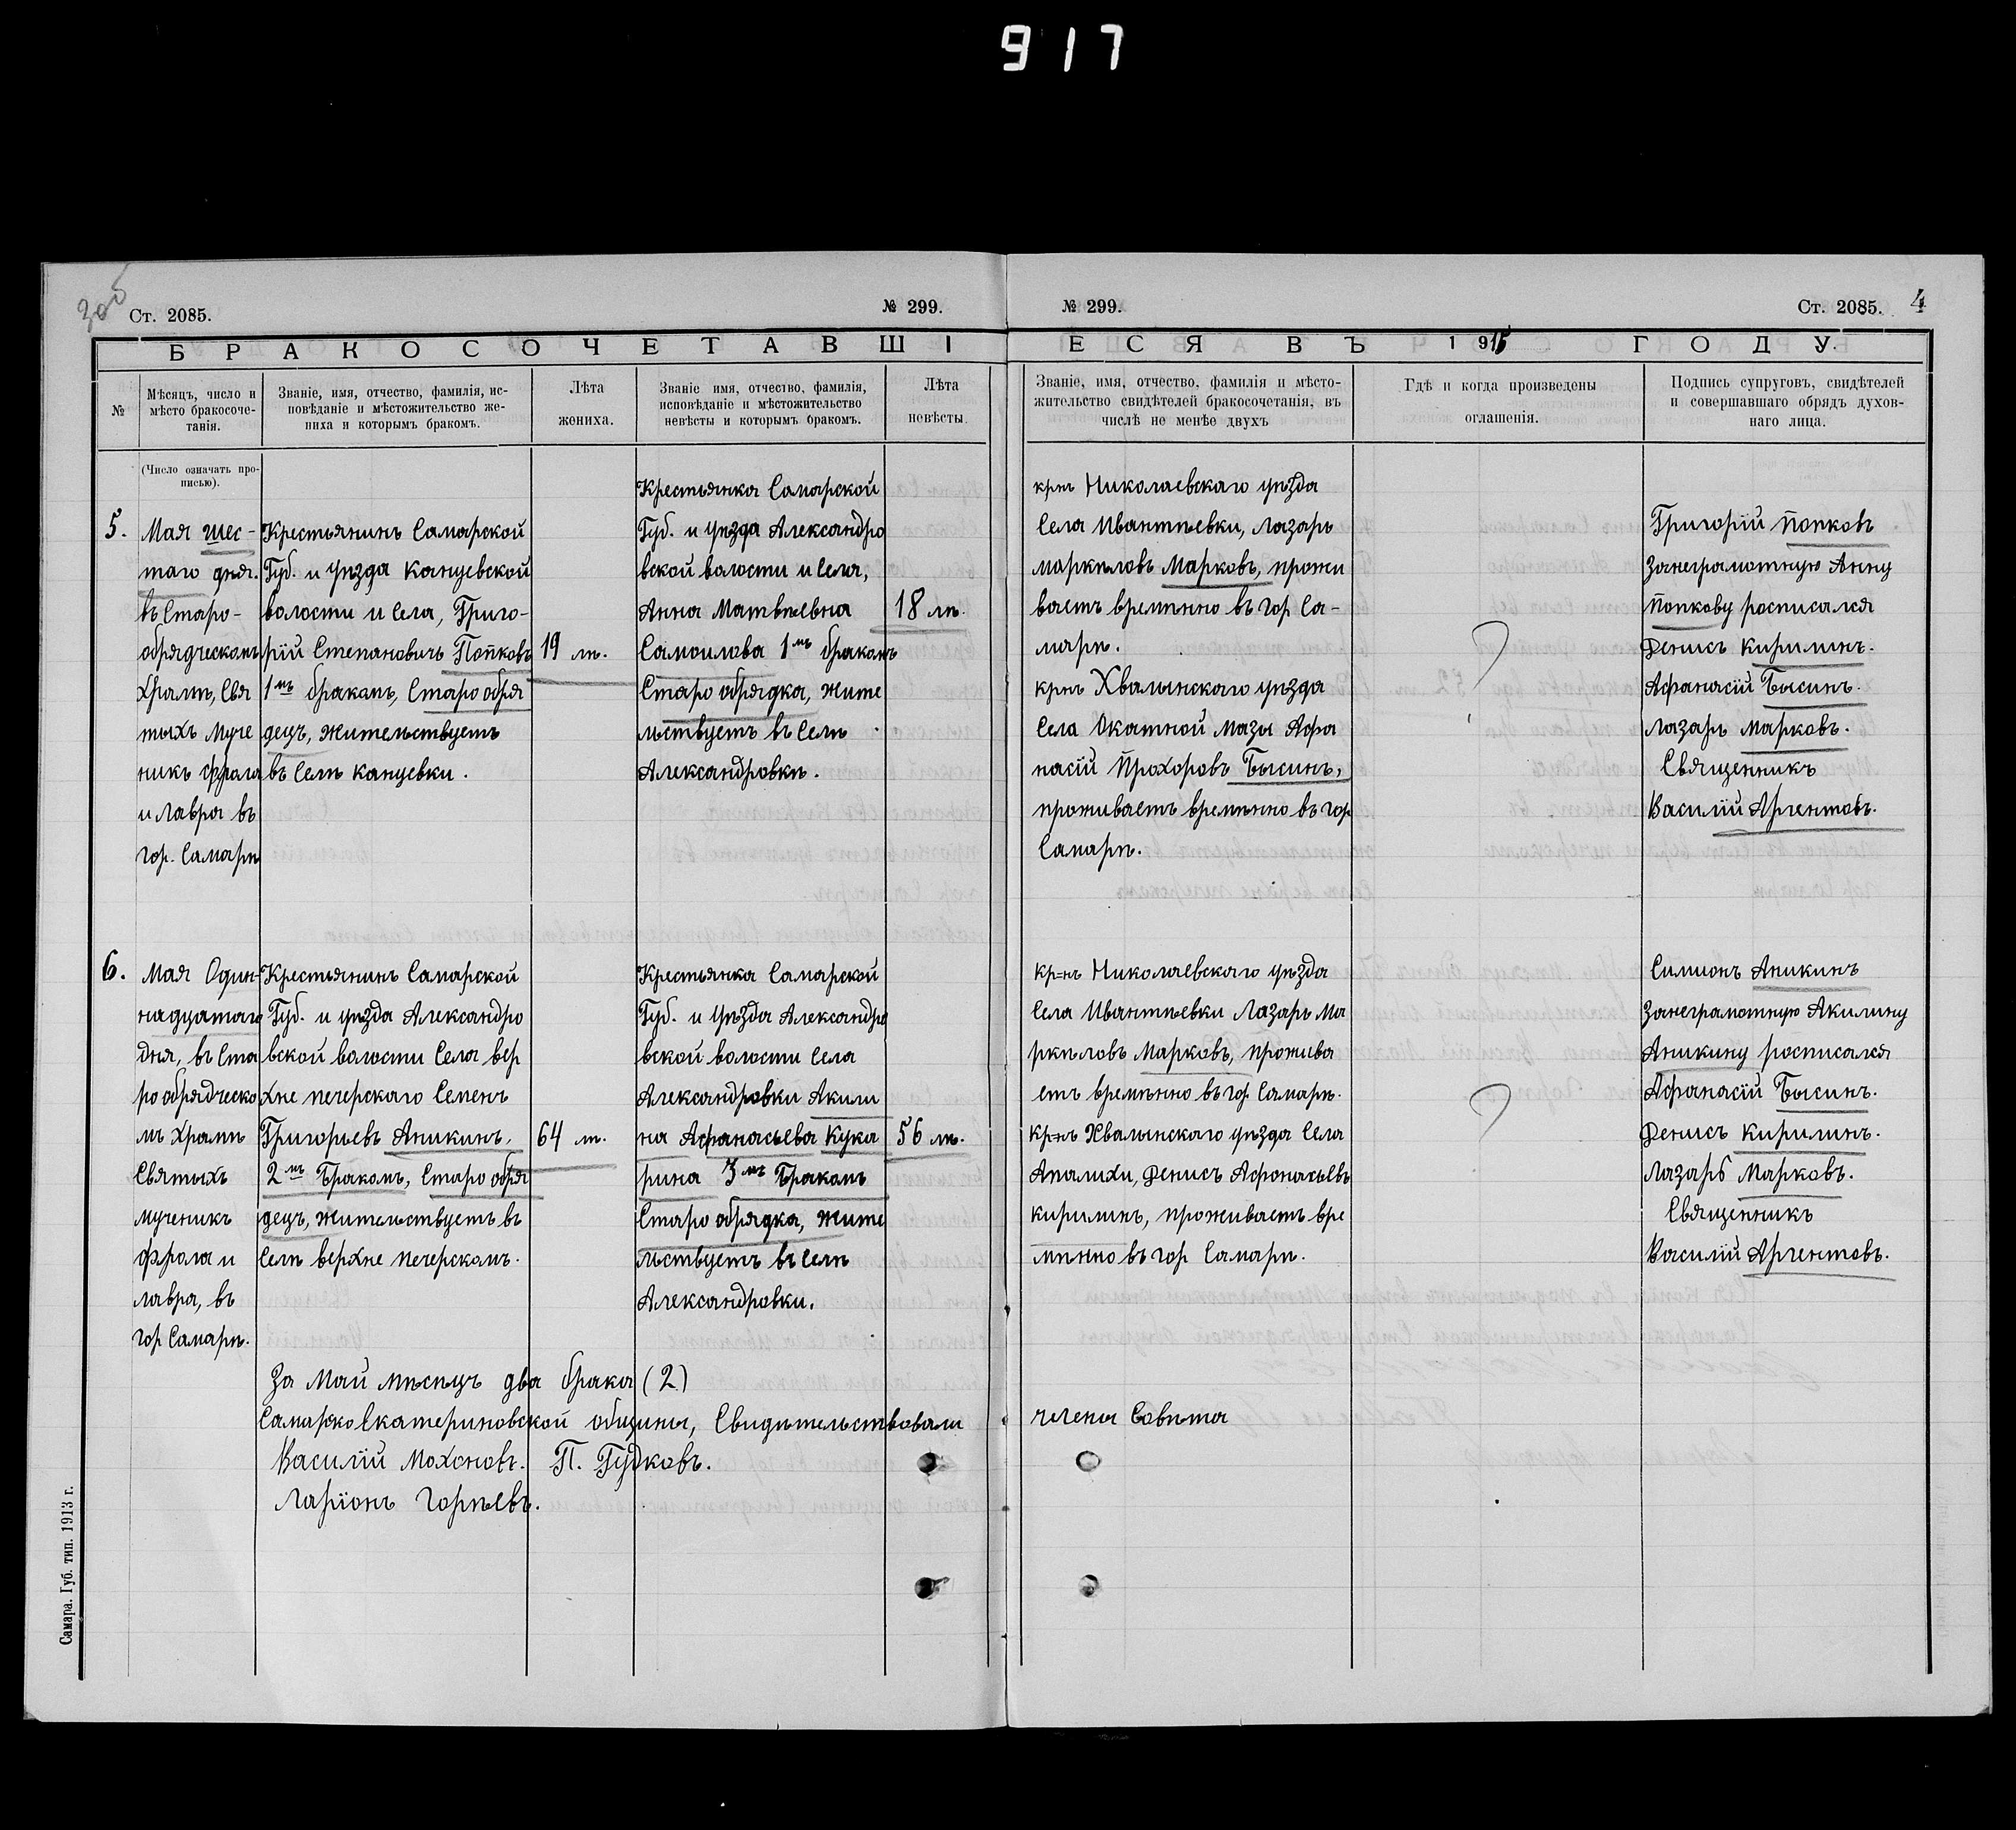 917
305
Ст. 2085.
№ 299.
№ 299.
Ст. 2085.
4
БРАКОСОЧЕТАВШІ
ЕСЯ ВЪ 1915 ГОДУ.
№
Мѣсяцъ, число и
мѣсто бракосоче-
танія.
Званіе, имя, отчество, фамилія, ис-
повѣданіе и мѣстожительство же-
ниха и которымъ бракомъ.
Лѣта
жениха.
Званіе имя, отчество, фамилія,
исповѣданіе и мѣстожительство
невѣсты и которымъ бракомъ.
Лѣта
невѣсты.
Званіе, имя, отчество, фамилія и мѣсто-
жительство свидѣтелей бракосочетанія, въ
числѣ не менѣе двухъ
Гдѣ и когда произведены
оглашенія.
Подпись супруговъ, свидѣтелей
и совершавшаго обрядъ духов-
наго лица.
(Число означать про-
писью).
5.
Мая шес-
таго дня.
въ Старо-
обрядческомъ
Храмѣ, Свя
тыхъ Муче
никъ Фрола
и Лавра въ
гор. Самарѣ
Крестьянинъ Самарской
Губ. и уѣзда Канцевской
волости и села, Григо-
рій Степановичъ Попковъ
1мъ бракомъ, Старо обря
децъ, жительствуетъ
въ селѣ Канцевки.
19 лѣ.
Крестьянка Самарской
Губ. и уѣзда Александро
вской волости и села,
Анна Матвѣевна
Самоилова 1мъ бракомъ
Старо обрядка, жите
льствуетъ въ селѣ
Александровкѣ.
18 лѣ.
крнъ Николаевскаго уѣзда
Села Ивантѣевки, Лазарь
Маркѣловъ Марковъ, прожи
ваетъ времѣнно въ гор Са-
марѣ.
крнъ Хвалынскаго уѣзда
Села Окатной Мазы Афа
насій Прохоровъ Бысинъ,
проживаетъ времѣнно въ гор
Самарѣ.
Григорій Попковъ
Занеграмотную Анну
Попкову росписался
Денисъ Кирилинъ.
Афанасій Бысинъ.
Лазарь Марковъ.
Священникъ
Василій Аргентовъ.
6.
Мая Один-
надцатаго
дня, въ Ста
ро обрядческо
мъ Храмѣ
Святыхъ
мученикъ
Фрола и
Лавра, въ
гор Самарѣ.
Крестьянинъ Самарской
Губ. и уѣзда Александро
вской волости Села вер
хне печерскаго Семенъ
Григорьевъ Аникинъ,
2мъ Бракомъ, Старо обря
децъ, жительствуетъ въ
Селѣ верхне печерскомъ.
64 лѣ.
Крестьянка Самарской
Губ. и уѣзда Александро
вской волости Села
Александровки Акили
на Афанасьева Кука
рина 3мъ Бракомъ
Старо обрядка, жите
льствуетъ въ селѣ
Александровки.
56 лѣ.
кр=нъ Николаевскаго уѣзда
Села Ивантѣевки Лазарь Ма
ркѣловъ Марковъ, прожива
етъ времѣнно въ гор. Самарѣ.
кр=нъ Хвалынскаго уѣзда Села
Апалихи, Денисъ Афонасьевъ
кирилинъ, проживаетъ вре
мѣнно въ гор Самарѣ.
Симионъ Аникинъ
Занеграмотную Акилину
Аникину росписался
Афанасій Бысинъ.
Денисъ Кирилинъ.
Лазарь Марковъ.
Священникъ
Василій Аргентовъ.
За Май мѣсецъ два брака (2)
Самарско Екатериновской общины, Свидѣтельствовали члены Совѣта
Василій Мохоновъ. П. Гудковъ.
Ларіонъ Горѣевъ.
Самара. Губ. тип. 1913 г.